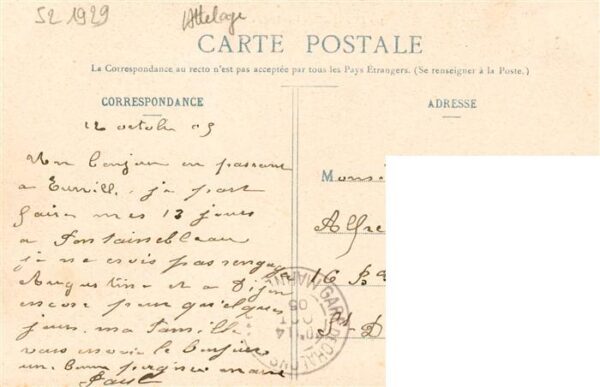 52 1929
Attelage
CARTE POSTALE
La Correspondance au recto n'est pas acceptée par tous les Pays Étrangers. (Se renseigner à la Poste.)
CORRESPONDANCE
ADRESSE
12 octobre 05
Un bonjour en passant
a Eurvill. je part
faire mes 13 jours
a Fontainebleau
je ne crois pas rengage
Augustine et a Dijon
encore pour quelques
jours. ma famille
vous envoie le bonjour
un bonne
Paul
Monsi
Alfre
16 B
St D
GARE DE CHALONS
MARNE
14
OCT
05